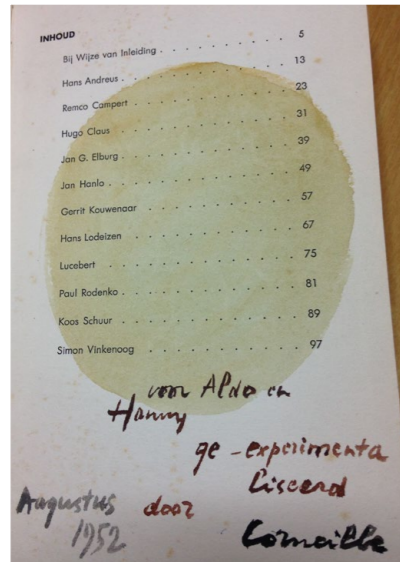 INHOUD
Bij Wijze van Inleiding . . . . . . . . . . 5
Hans Andreus . . . . . . . . . . . . 13
Remco Campert . . . . . . . . . . . . 23
Hugo Claus . . . . . . . . . . . . 31
Jan G. Elburg . . . . . . . . . . . . 39
Jan Hanlo . . . . . . . . . . . . 49
Gerrit Kouwenaar . . . . . . . . . . . 57
Hans Lodeizen . . . . . . . . . . . . 67
Lucebert . . . . . . . . . . . . 75
Paul Rodenko . . . . . . . . . . . . 81
Koos Schuur . . . . . . . . . . . . 89
Simon Vinkenoog . . . . . . . . . . . 97
voor Aldo en
Hanny
ge-experimenta
liseerd
Augustus door
1952 Corneille